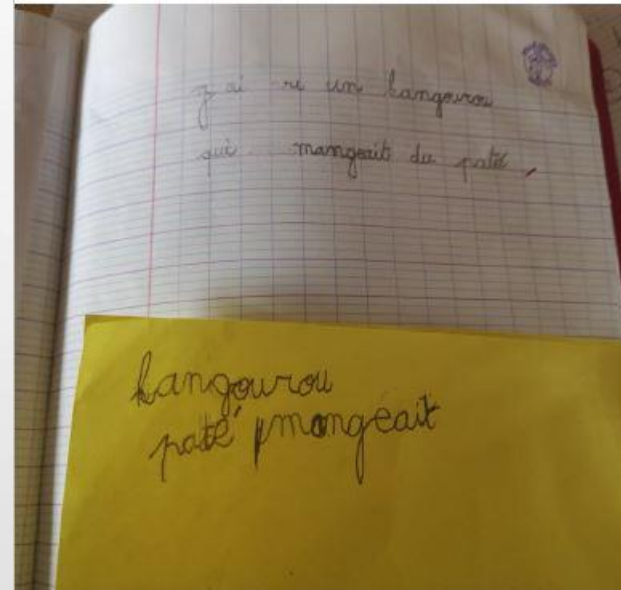 j'ai vu un kangourou
qui mangeait du paté,
kangourou
paté mangeait